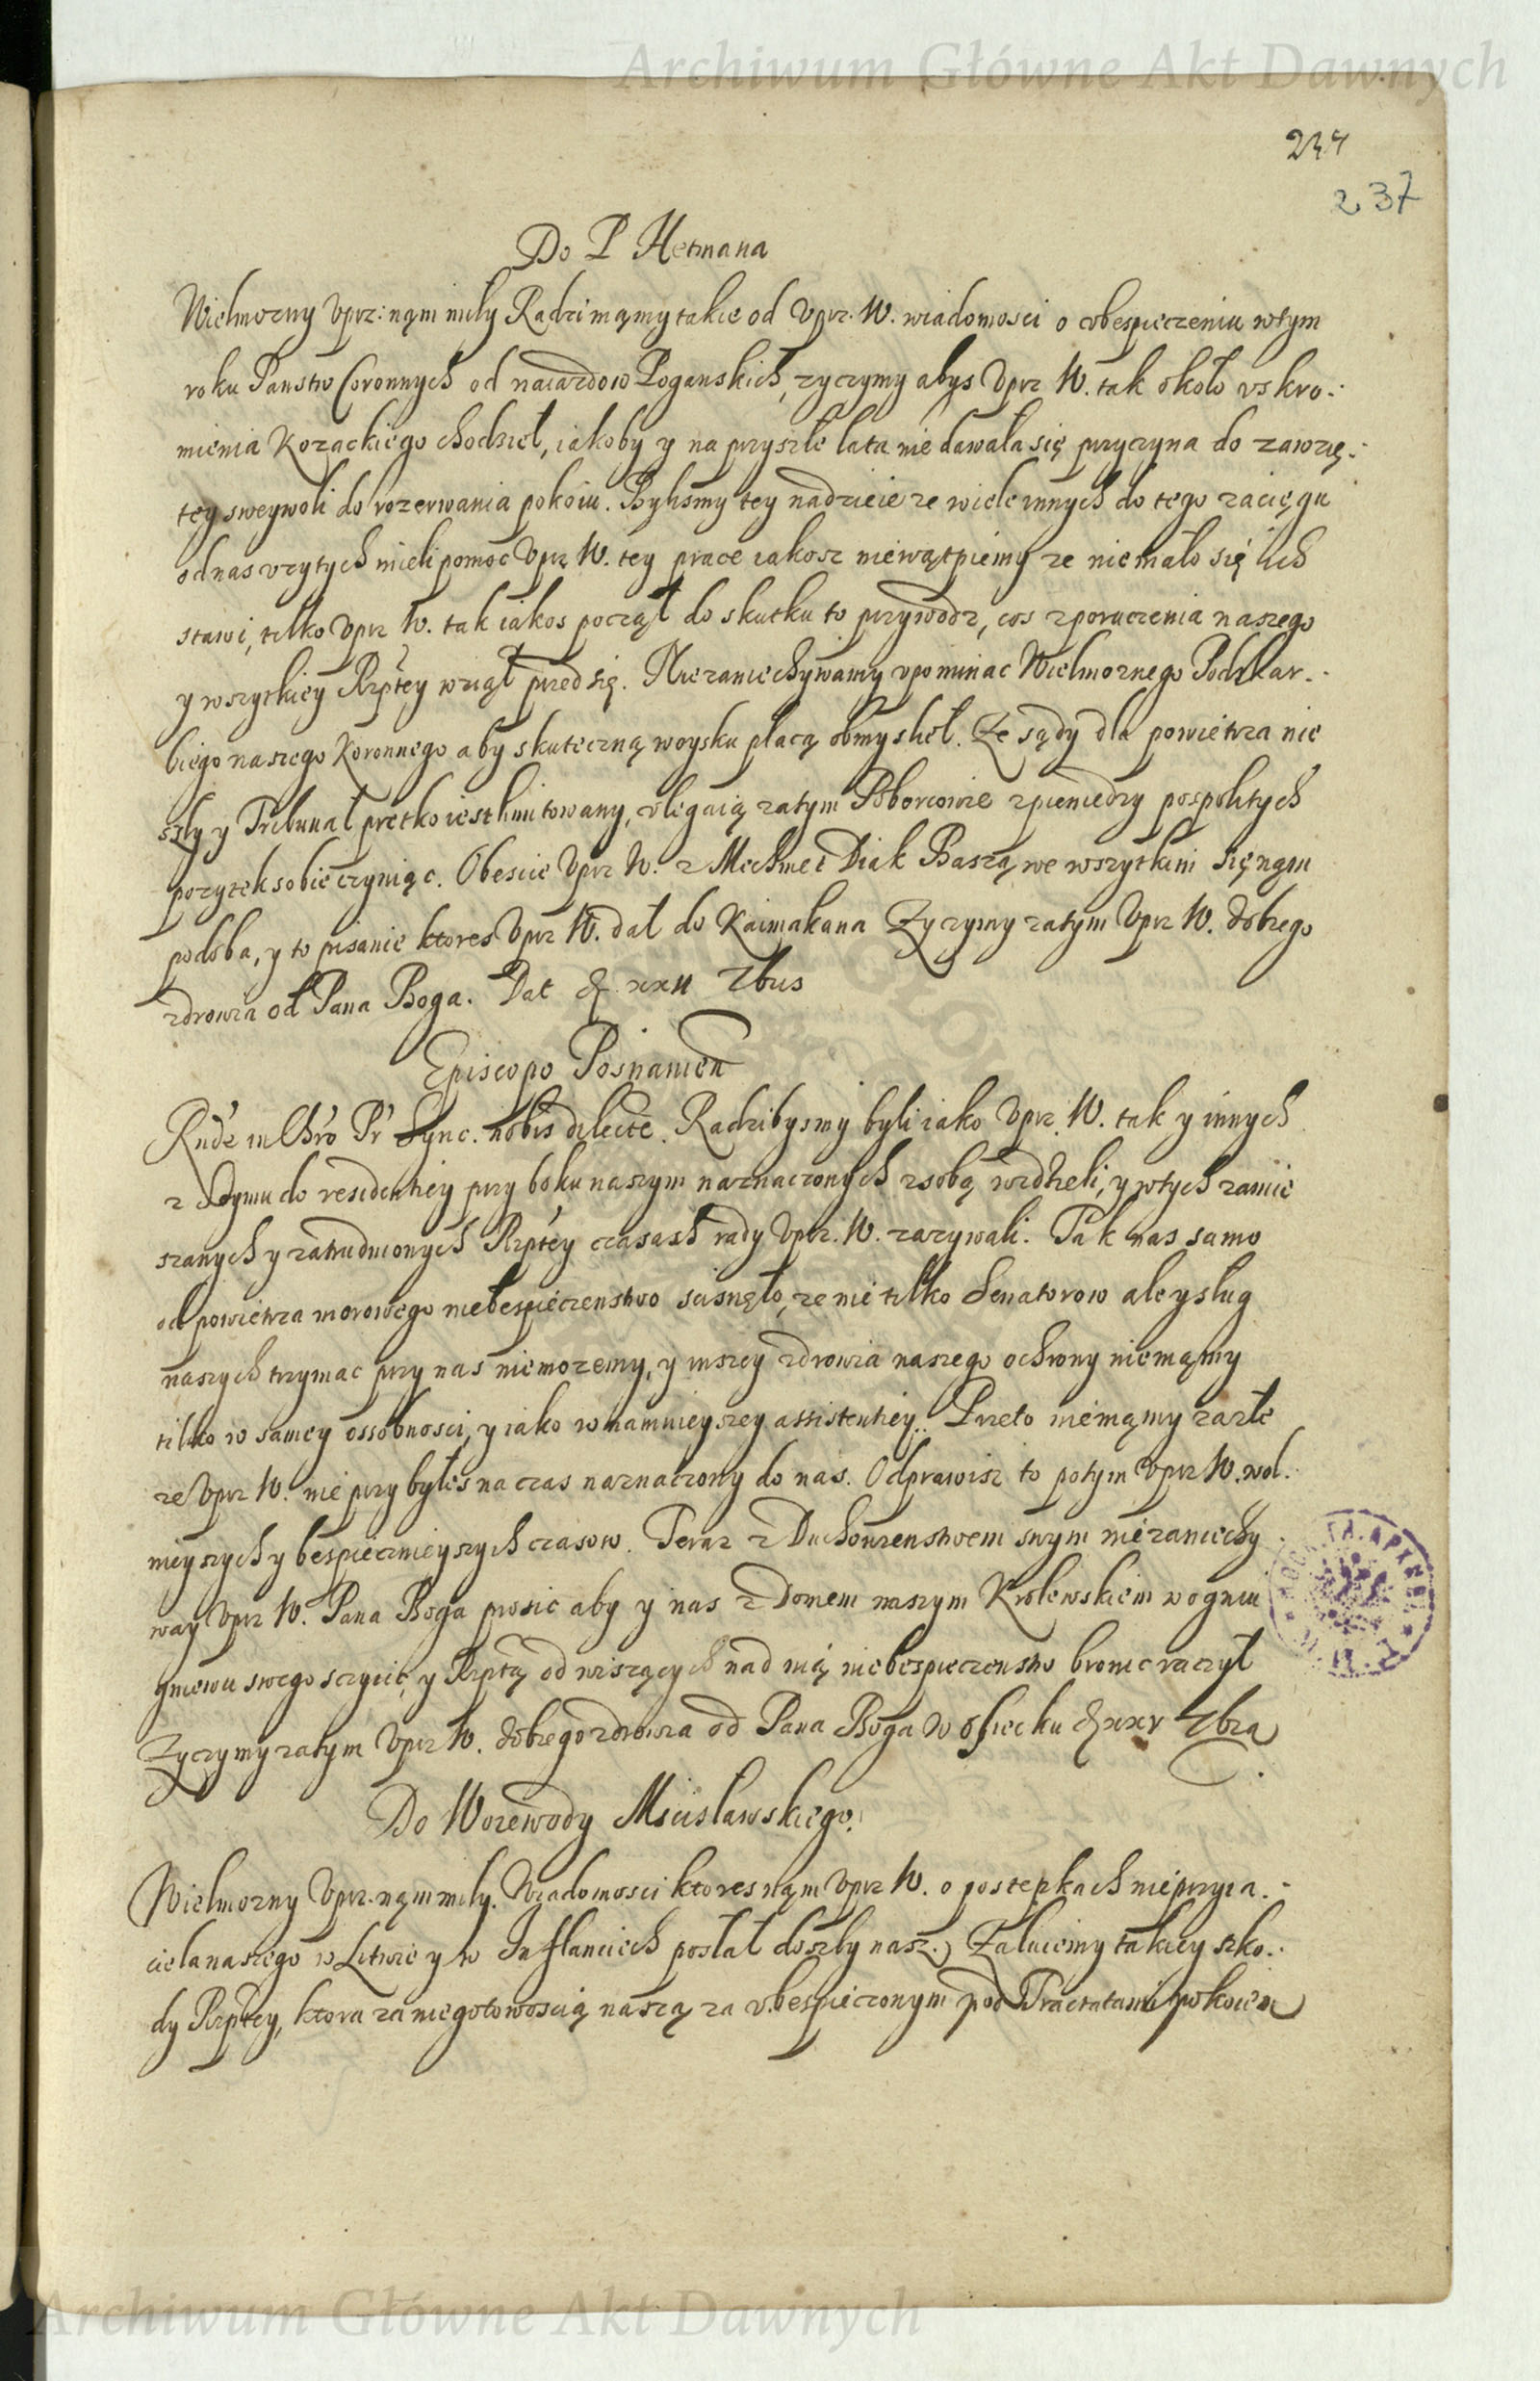 Archiwum Główne Akt Dawnych
234
237
Do P Hetmana
Wielmozny Vprz: nąm miły Radzi mąmy takie od Vprz. W. wiadomosci o vbespieczeniu wtym
roku Panstw Coronnych od naiazdow Poganskich, zyczymy abys Vprz W. tak około vskro-
mienia Kozackiego chodził, iakoby y na przyszłe lata nie dawała się przyczyna do zawzię-
tey sweywoli do rozerwania pokoiu. Bylismy tey nadzieie ze wiele innych do tego zaciągu
od nas vzytych mieli pomoc Vprz W. tey prace iakosz niewątpiemy ze nie mało się ich
stawi, tilko Vprz W. tak iakos począł do skutku to przywodz, cos z poruczenia naszego
y wszytkiey Rzptey wziął przed się. Nie zaniechywamy vpominac Wielmoznego Podskar-
biego naszego Koronnego aby skuteczną woysku płacą obmyslieł. Ze sądy dla powietrza nie
szły y Tribunał pretko iest limitowany, vlegaią zatym Poborcowie z pieniedzy pospolitych
pozytek sobie czyniąc. Obescie Vprz W. z Mechmet Diak Baszą we wszytkim się nąm
podoba, y to pisanie ktores Vprz W. dał do Kaimakana Zyczymy zatym Vprz W. dobrego
zdrowia od Pana Boga. Dat & xxii 7bris
Episcopo Posnanien
Rnde in Chro Pr Sync. nobis dilecte. Radzibysmy byli iako Vprz. W. tak y innych
z Seymu do residentiey przy boku naszym naznaczonych z sobą widzieli, y wtych zamie
szanych y zatrudnionych Rzptey czasach rady Vprz. W. zazywali. Tak nas samo
od powietrza morowego niebespieczenstwo scisnęło, ze nie tilko Senatorow ale y sług
naszych trzymac przy nas niemozemy, y inszey zdrowia naszego ochrony niemąmy
tilko w samey ossobnosci, y iako w namnieyszey assistentiey. Przeto niemąmy za złe
ze Vprz W. nie przybyłes na czas naznaczony do nas. Odprawisz to potym Vprz W. wol-
nieyszych y bespiecznieyszych czasow. Teraz z Duchowienstwem swym niezaniechy
way Vprz W. Pana Boga prosic aby y nas z Domem naszym Krolewskiem w ogniu
gniewu swego sczycic, y Rzptą od wiszących nad nią niebespieczenstw bronic raczył
Zyczymy zatym Vprz W. dobrego zdrowia od Pana Boga w Osiecku & xxv 7bra
Do Woiewody Mscisławskiego.
Wielmozny Vprz. nąm miły. Wiadomosci ktores nąm Vprz W. o postepkach nieprzyia-
ciela naszego w Litwie y w Inflanciech posłał doszły nasz. Załuiemy takiey szko-
dy Rzptey, ktora za niegotowoscią naszą za vbespieczonym pod Tractatami pokoiem
Archiwum Główne Akt Dawnych